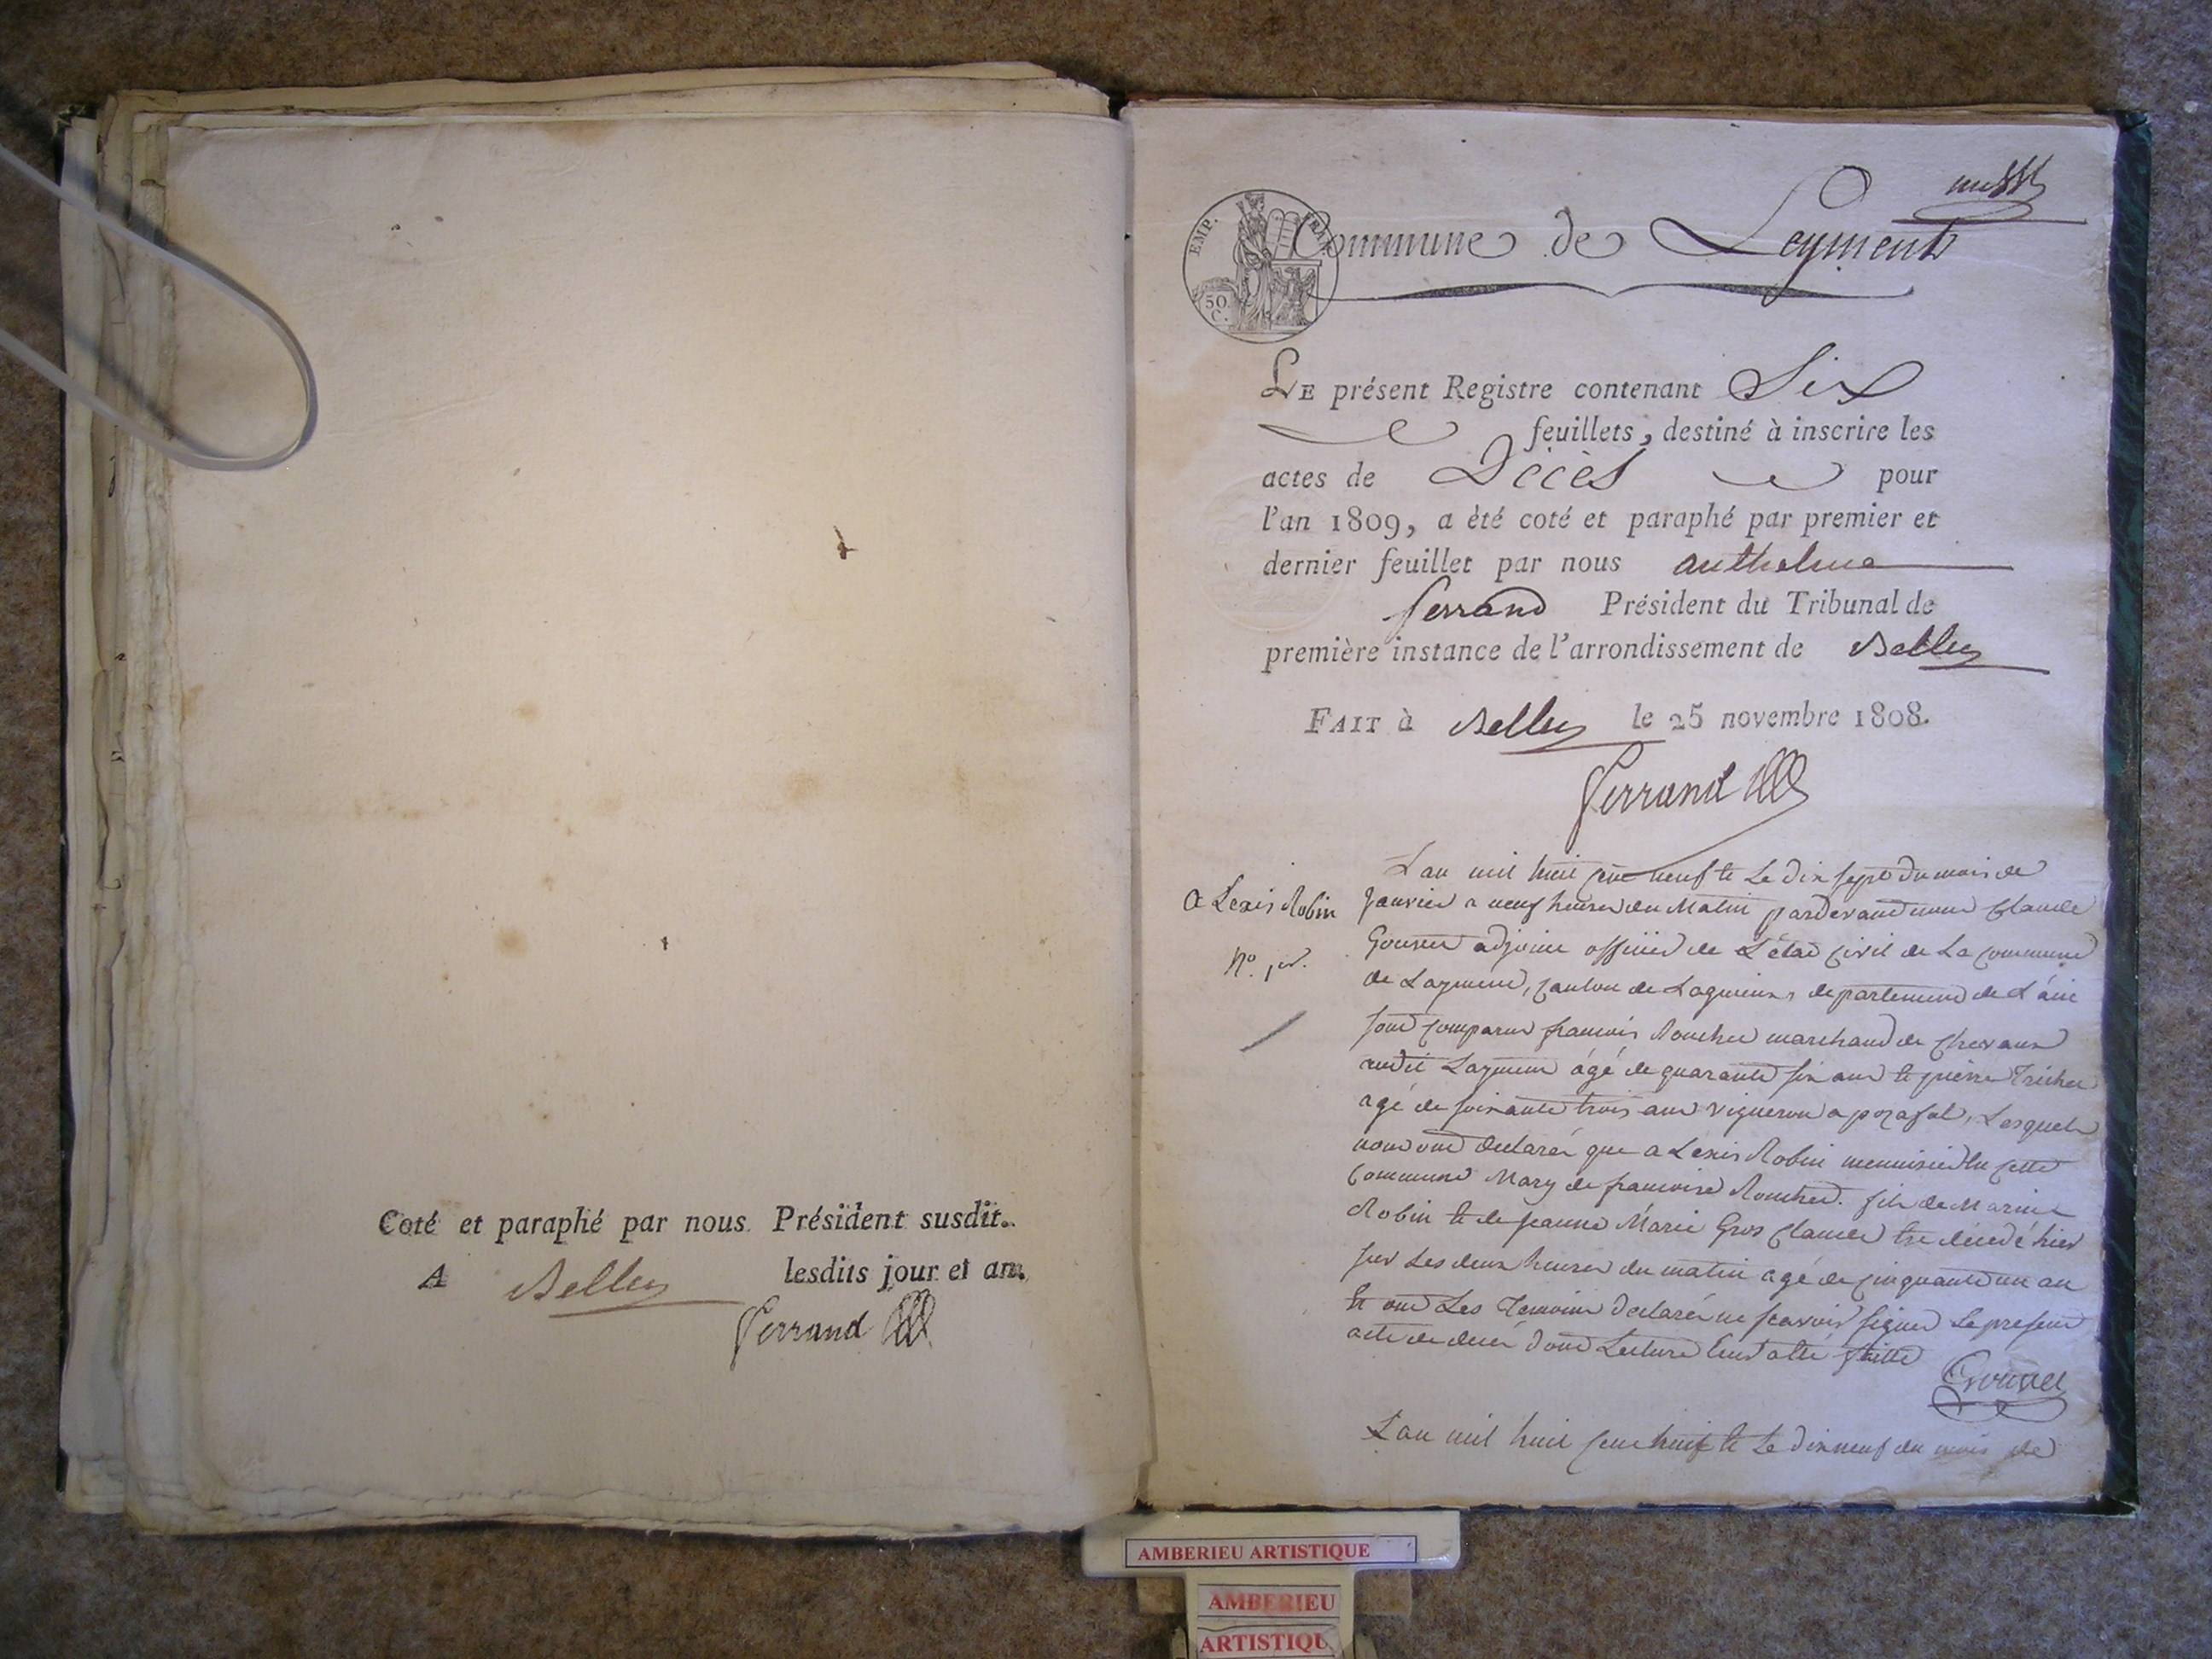 Coté et paraphé par nous Président susdit.
A Belley lesdits jour et an.
Ferrand
EMP. FRAN.
50 C.
Commune de Leyment
Le présent Registre contenant Six
feuillets, destiné à inscrire les
actes de Décès pour
l'an 1809, a èté coté et paraphé par premier et
dernier feuillet par nous anthelme
ferrand Président du Tribunal de
première instance de l'arrondissement de Belley
FAIT à Belley le 25 novembre 1808.
Ferrand
a Lexis Robin
No. 1er.
L'an mil huit cent neuf et Le dix sept du mois de
Janvier a neuf heures du Matin pardevant nous Claude
adjoint officier de L'état civil de La commune
de Layment, canton de Lagnieux, departement de L'ain
sont comparus francois Rouchet marchand de chevaux
audit Layment âgé de quarante six ans et pierre Trichet
agé de soixante trois ans vigneron a posafol, Lesquels
nous ont declarés que a Lexis Robin menuisier en cette
commune Mary de francoise Rouchet. fils de Marin
Robin et de jeanne Marie Gros Claude est décedé hier
sur Les deux heures du matin agé de cinquante un an
et ont Les Temoins declarés ne scavoir signer Le present
acte de decés dont Lecture Leur a été faitte
L'an mil huit cent neuf et Le dix neuf du mois de
AMBERIEU ARTISTIQUE
AMBERIEU
ARTISTIQU